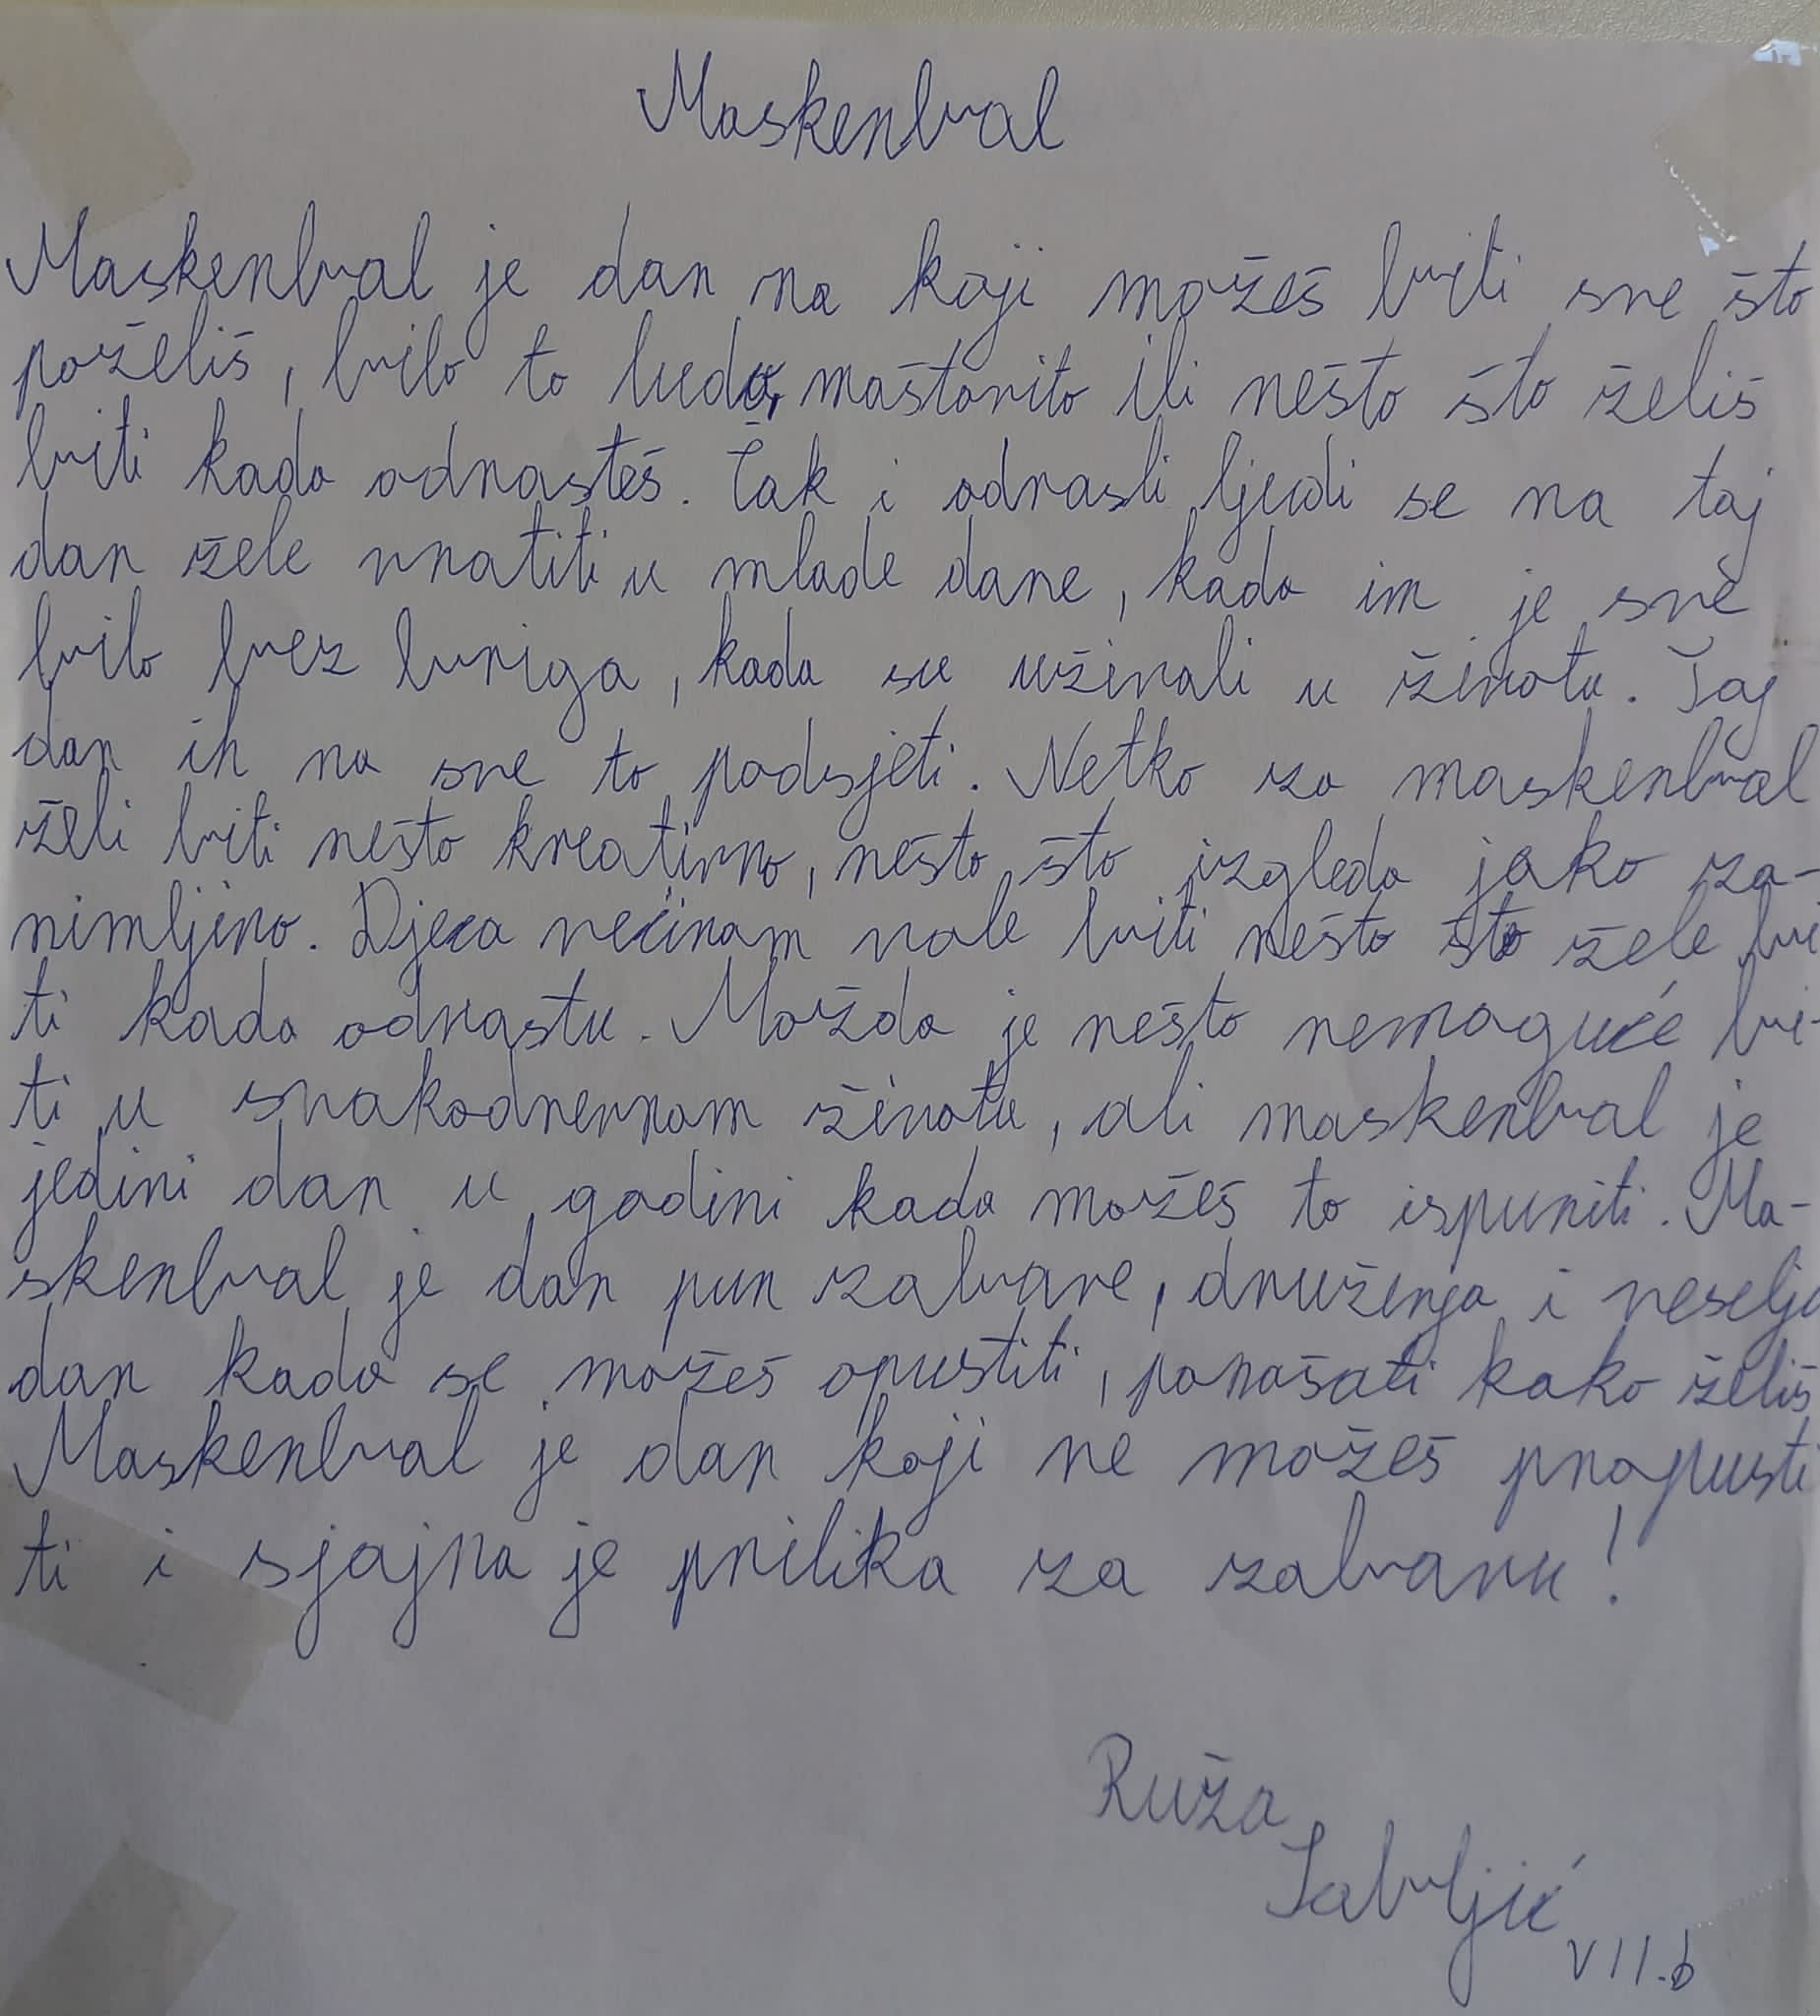 Maskenbal
Maskenbal je dan na koji možeš biti sve što
poželiš, bilo to ludo, maštovito ili nešto što želiš
biti kada odrasteš. Čak i odrasli ljudi se na taj
dan žele vratiti u mlade dane, kada im je sve
bilo bez briga, kada su uživali u životu. Taj
dan ih na sve to podsjeti. Netko za maskenbal
želi biti nešto kreativno, nešto što izgleda jako za-
nimljivo. Djeca većinom vole biti nešto što žele bi
ti kada odrastu. Možda je nešto nemoguće bi-
ti u svakodnevnom životu, ali maskenbal je
jedini dan u godini kada možeš to ispuniti. Ma-
skenbal je dan pun zabave, druženja i veselja
dan kada se možeš opustiti, ponašati kako želiš
Maskenbal je dan koji ne možeš propusti
ti i sjajna je prilika za zabavu!
Ruža
Sabljić
VII.b